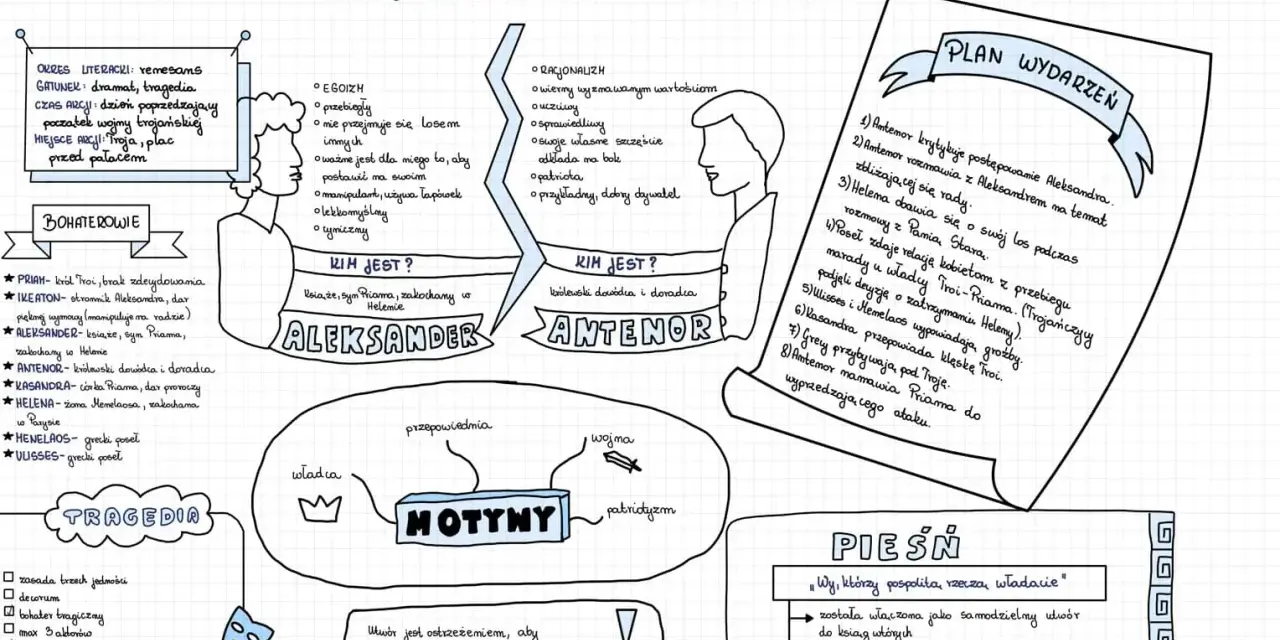 OKRES LITERACKI: renesans
GATUNEK: dramat, tragedia
CZAS AKCJI: dzień poprzedzający
początek wojny trojańskiej
MIEJSCE AKCJI: Troja, plac
przed pałacem
BOHATEROWIE
★ PRIAM- król Troi, brak zdecydowania
★ IKEATON- stronnik Aleksandra, dar
pięknej wymowy (manipuluje na radzie)
★ ALEKSANDER- książe, syn Priama,
zakochany w Helenie
★ ANTENOR- królewski dowódca i doradca
★ KASANDRA- córka Priama, dar proroczy
★ HELENA- żona Menelaosa, zakochana
w Parysie
★ MENELAOS- grecki poseł
★ ULISSES- grecki poseł
TRAGEDIA
zasada trzech jedności
decorum
bohater tragiczny
max 3 aktorów
EGOIZM
przebiegły
nie przejmuje się losem
innych
ważne jest dla niego to, aby
postawić na swoim
manipulant, używa łapówek
lekkomyślny
cyniczny
KIM JEST?
książe, syn Priama, zakochany w
Helenie
ALEKSANDER
RACJONALIZM
wierny wyznawanym wartościom
uczciwy
sprawiedliwy
swoje własne szczęście
odkłada na bok
patriota
przykładny, dobry obywatel
KIM JEST?
królewski dowódca i doradca
ANTENOR
PLAN WYDARZEŃ
1) Antenor krytykuje postępowanie Aleksandra.
2) Antenor rozmawia z Aleksandrem na temat
zbliżającej się rady.
3) Helena obawia się o swój los podczas
rozmowy z Panią Starą.
4) Poseł zdaje relację kobietom z przebiegu
narady u władcy Troi-Priama. (Trojańczycy
podjęli decyzję o zatrzymaniu Heleny).
5) Ulisses i Menelaos wypowiadają groźby.
6) Kasandra przepowiada klęskę Troi.
7) Grecy przybywają pod Troję.
8) Antenor namawia Priama do
wyprzedzającego ataku.
przepowiednia
wojna
władca
patriotyzm
MOTYWY
Utwór jest ostrzeżeniem, aby
PIEŚŃ
„Wy, którzy pospolitą rzeczą władacie"
została włączona jako samodzielny utwór
do ksiąg wtórych